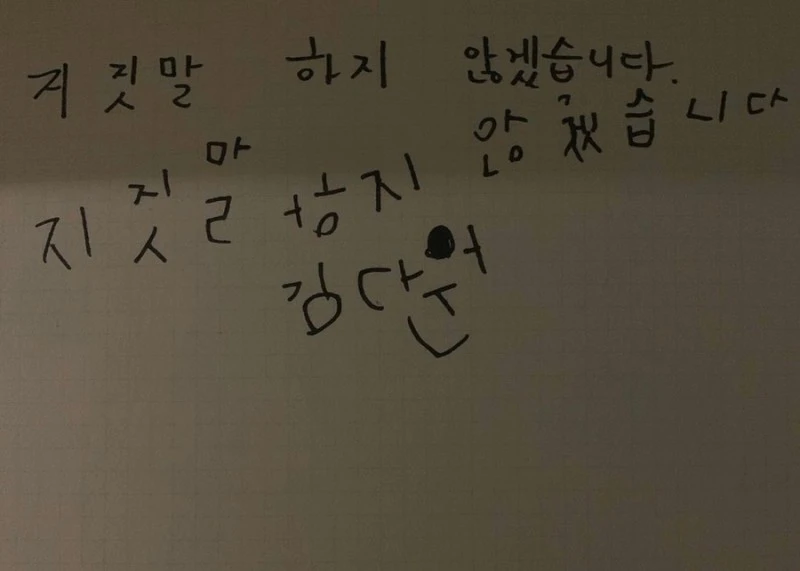 거짓말 하지 않겠습니다.
지짓말 하지 않겠습니다
김다원